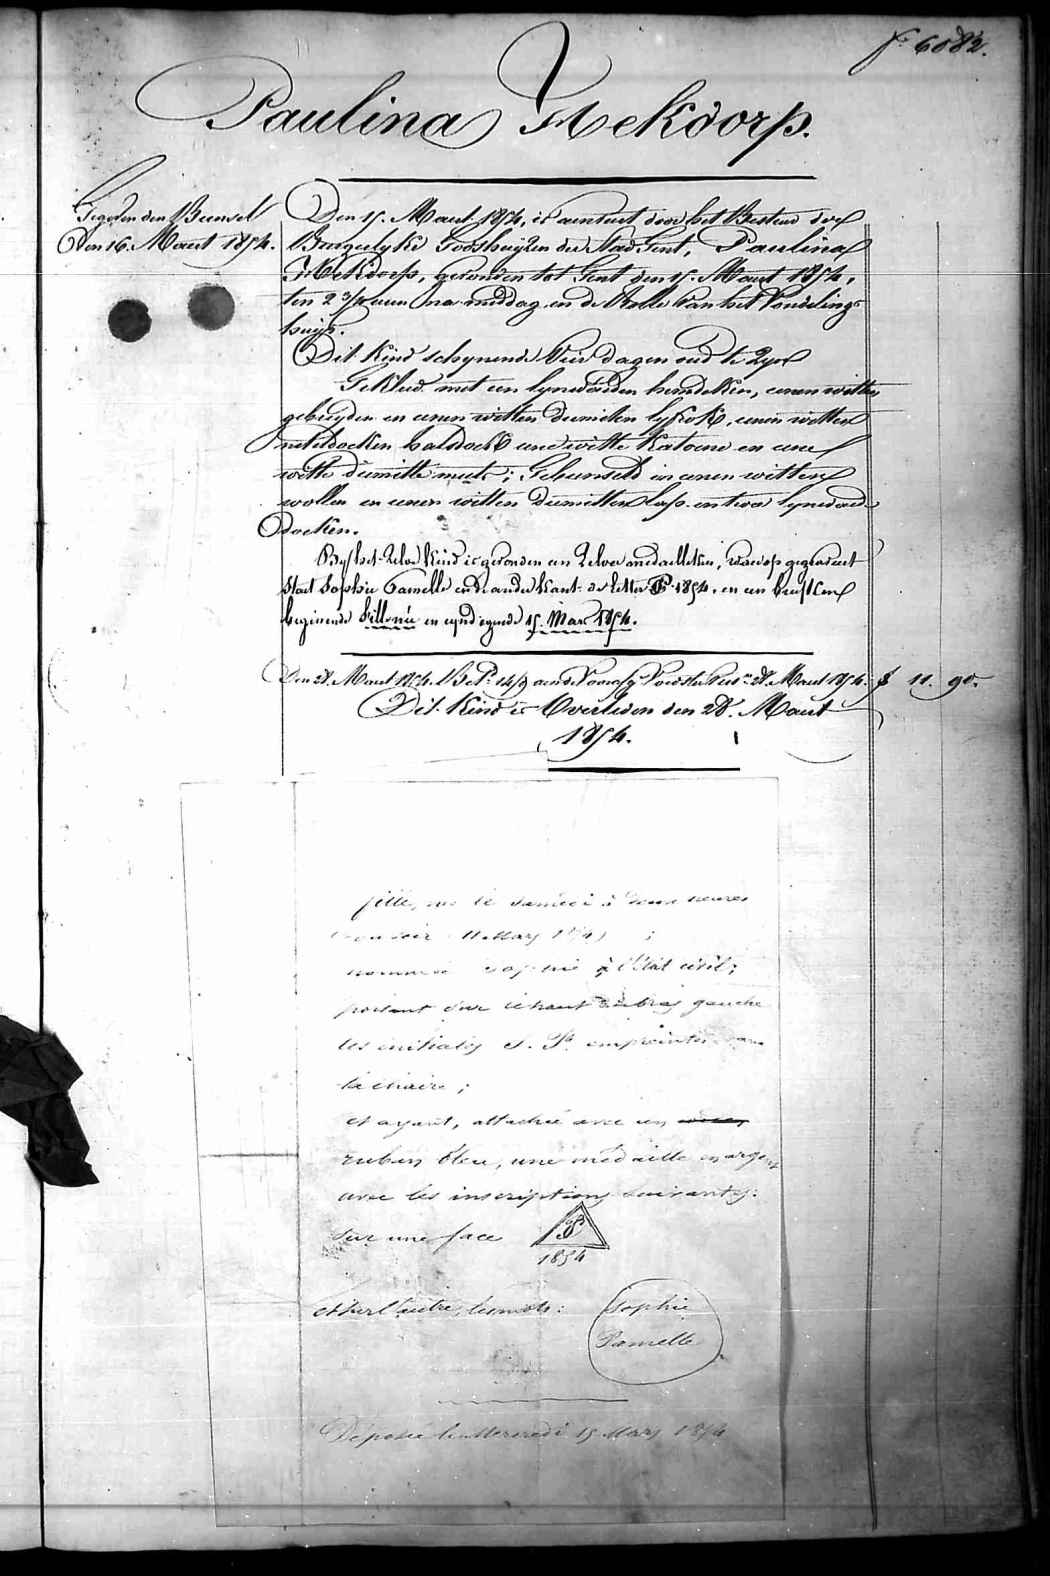 f° 6082.
Paulina Hekdorp.
Gegeven den Bunsel
Den 16. Maart 1854.
Den 15. Maart 1854, is aenveert door het Bestuer der
Burgelyke Godshuyzen der Stad Gent, Paulina
Hekdorp, gevonden tot Gent den 15. Maart 1854,
ten 2 3/4 uren na middag in de Rolle van het Vondeling-
huys.
Dit Kind schynende Vier dagen oud te zyn
Gekleed met een lynwaeden hemdeken, eenen witten
gebreyden en eenen witten dimitten lyfrok, eenen witten
neteldoeken halsdoek eene witte katoene en eene
witte dimitte muts; Gebunseld in eenen witten
wollen en eenen witten dimitten lap en twee lynwaede
doeken.
By het zelve Kind is gevonden een zilver medailleken, waerop gegraveert
staet Sophie Pamelle en de ander kant de letter P 1854. en een briefken
beginnende fille née en eyndigende 15. Mars 1854.
Den 28. Maart 1854. Bet. 14/3 aen de 28 Maart 1854. f 11. 90.
Dit Kind is Overleden den 28. Maart
1854.
fille, née le samedi à deux heures
du soir 11 Mars 1854 ;
nommée Sophie à l'état civil;
portant sur le haut du bras gauche
les initiales S. P. empreintes dans
la chaire;
et ayant, attachée avec un
ruban bleu, une médaille en argent
avec les inscriptions suivantes:
sur une face P
1854
et sur l'autre, les mots: Sophie
Pamelle
Déposée le Mercredi 15 Mars 1854